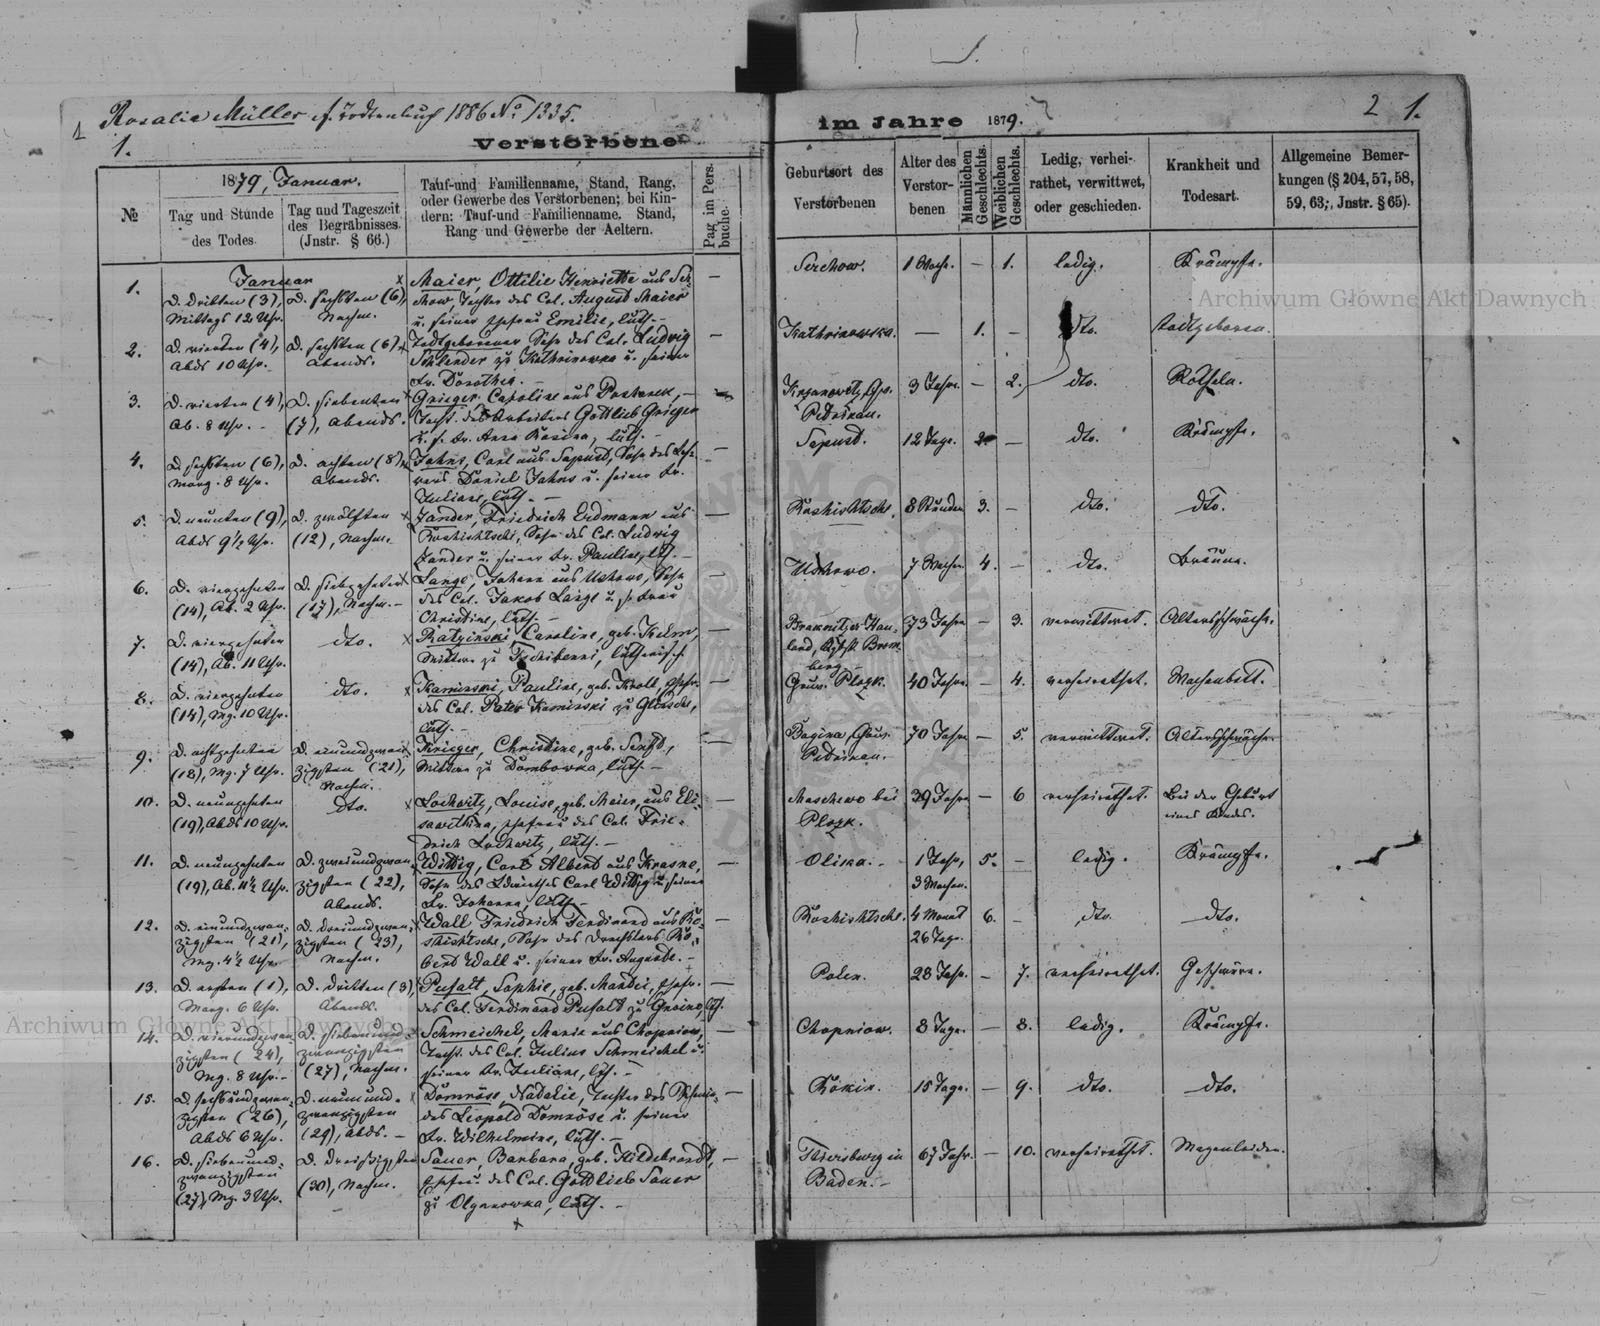 Rosalie Müller s. Todtenbuch 1886 No 1335.
1
1.
Verstorbene
1879, Januar.
№
Tag und Stunde
des Todes.
Tag und Tageszeit
des Begräbnisses.
(Jnstr. § 66.)
Tauf-und Familienname, Stand, Rang,
oder Gewerbe des Verstorbenen; bei Kin-
dern: Tauf-und Familienname, Stand,
Rang und Gewerbe der Aeltern.
Pag im Pers.
buche.
Januar
1.
D. dritten (3),
Mittags 12 Uhr.
D. sechsten (6),
Nachm.
Maier, Ottilie Henriette aus Ser-
chow, Tochter des Col. August Maier
u. seiner Ehefrau Emilie, luth. –
2.
D. vierten (4),
Abds 10 Uhr.
D. sechsten (6),
Abends.
Todtgeborener Sohn des Col. Ludwig
Schlender zu Kathrinowka u. seiner
Fr. Dorothea. –
3.
D. vierten (4),
Ab. 8 Uhr. –
D. siebenten
(7), Abends.
Grieger, Caroline aus
Tocht. des Arbeiters Gottlieb Grieger
u. s. Fr. Anna Rosina, luth. –
4.
D. sechsten (6),
Morg. 8 Uhr.
D. achten (8),
Abends.
Jahns, Carl aus Sapust, Sohn des Leh-
rers Daniel Jahns u. seiner Fr.
Juliane, luth. –
5.
D. neunten (9),
Abds 9½ Uhr.
D. zwölften
(12), Nachm.
Zander, Friedrich Erdmann aus
Roshischtsche, Sohn des Col. Ludwig
Zander u. seiner Fr. Pauline, lth. –
6.
D. vierzehnten
(14), Ab. 2 Uhr.
D. siebzehnten
(17), Nachm. –
Lange, Johann aus Uschowo, Sohn
des Col. Jakob Lange u. s. Frau
Christine, luth. –
7.
D. vierzehnten
(14), Ab. 11 Uhr.
dto.
Ratzinski, Caroline, geb. Helm,
Wittwe zu lutherisch.
8.
D. vierzehnten
(14), Mg. 10 Uhr.
dto.
Kaminski, Pauline, geb. Kroll, Ehefr.
des Col. Peter Kaminski zu
luth. –
9.
D. achtzehnten
(18), Mg. 7 Uhr.
D. einundzwan-
zigsten (21),
Nachm.
Krieger, Christine, geb. Senft,
Wittwe zu Dombowka, luth. –
10.
D. neunzehnten
(19), Abds 10 Uhr.
dto.
Lochwitz, Louise, geb. Maier, aus Eli-
sawethina, Ehefrau des Col. Frie-
drich Lochwitz, luth. –
11.
D. neunzehnten
(19), Ab. 11½ Uhr.
D. zweiundzwan-
zigsten (22),
Abends.
Wittig, Carl Albert aus Krasne,
Sohn des Landwirthes Carl Wittig u. seiner
Fr. Johanna, luth. –
12.
D. einundzwan-
zigsten (21),
Mg. 4½ Uhr.
D. dreiundzwan-
zigsten (23),
Nachm.
Wall, Friedrich Ferdinand aus Ro-
shischtsche, Sohn des Drechslers Ro-
bert Wall u. seiner Fr. Auguste. –
13.
D. ersten (1),
Morg. 6 Uhr.
D. dritten (3),
Abends.
Pufalt, Sophie, geb. Mandei, Ehefr.
des Col. Ferdinand Pufalt zu Gnoino, lth.
14.
D. vierundzwan-
zigsten (24),
Mg. 8 Uhr. –
D. siebenund-
zwanzigsten
(27), Nachm.
Schmeichel, Maria aus Chopniow,
Tocht. des Col. Julius Schmeichel u.
seiner Fr. Juliane, lth. –
15.
D. sechsundzwan-
zigsten (26),
Abds 6 Uhr.
D. neunund-
zwanzigsten
(29), Abds. –
Domröse, Nadalie, Tochter des Schmie-
des Leopold Domröse u. seiner
Fr. Wilhelmine, luth. –
16.
D. siebenund-
zwanzigsten
(27), Mg. 3 Uhr.
D. dreissigsten
(30), Nachm.
Sauer, Barbara, geb. Hildebrandt,
Ehefrau des Col. Gottlieb Sauer
zu Olganowka, luth. –
im Jahre 1879.
2 1.
Geburtsort des
Verstorbenen
Alter des
Verstor-
benen
Männlichen
Geschlechts.
Weiblichen
Geschlechts.
Ledig, verhei-
rathet, verwittwet,
oder geschieden.
Krankheit und
Todesart.
Allgemeine Bemer-
kungen (§ 204, 57, 58,
59, 63;, Jnstr. § 65).
Serchow. 1 Woche. – 1. ledig. Krämpfe.
Kathrinowka. — 1. – dto. todtgeboren.
Gv. 3 Jahre. – 2. dto. Rötheln.
Petrikau.
Sapust. 12 Tage. 2 – dto. Krämpfe.
Roshischtsche. 8 Stunden 3. – dto. dto.
Uschowo. 7 Wochen 4. – dto. Bräune.
Hau- 73 Jahre – 3. verwittwet. Altersschwäche.
land, Brom-
berg. –
Gouv. Plozk. 40 Jahre. – 4. verheirathet. Wochenbett.
Bogina, Gouv. 70 Jahre – 5. verwittwet. Altersschwäche.
Petrikau.
Maschewo bei 39 Jahre – 6 verheirathet. Bei der Geburt
Plozk. eines Kindes.
Olisa. – 1 Jahr, 5. – ledig. Krämpfe.
3 Wochen.
Roshischtsche. 4 Monat 6. – dto. dto.
26 Tage.
Polen. 28 Jahr. – 7. verheirathet. Geschwüre.
Chopniow. 8 Tage. – 8. ledig. Krämpfe.
Rokin. 15 Tage. – 9. dto. dto.
in 67 Jahr. – 10. verheirathet. Magenleiden.
Baden. –
Archiwum Główne Akt Dawnych
Archiwum Główne Akt Dawnych